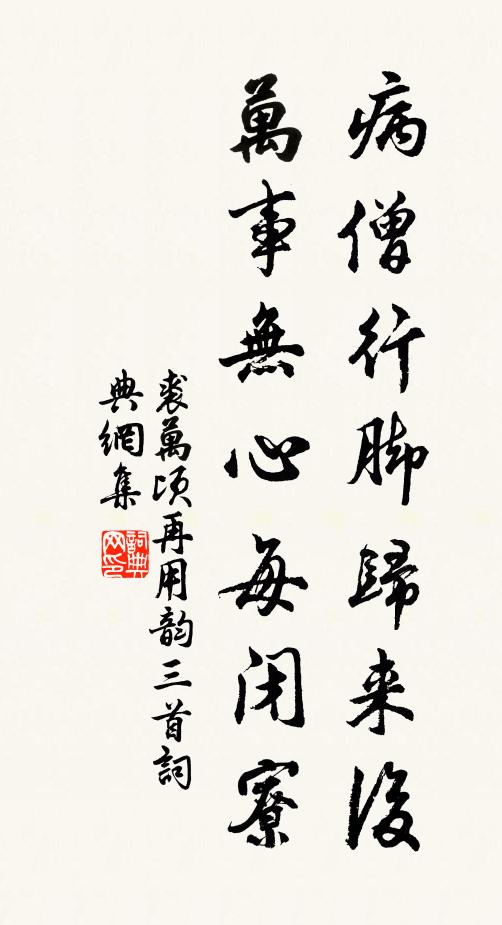 病僧行脚歸来後
萬事無心每闭寮
裘萬頃再用韵三首詞
典網集
詞典
网印